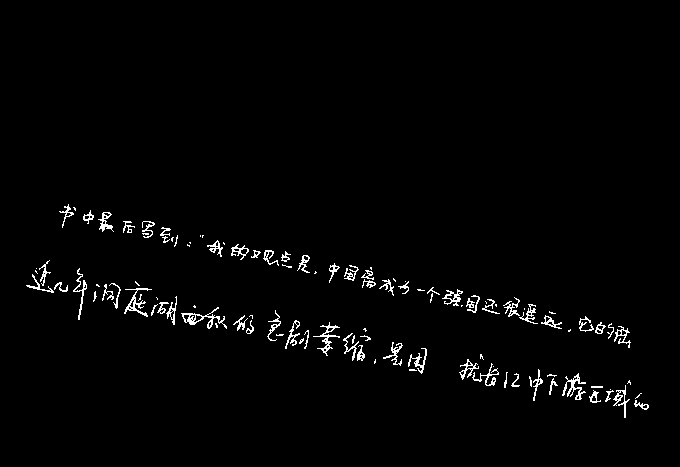 书中最后写到："我的观点是，中国离成为一个强国还很遥远，它的陆
近几年洞庭湖面积的急剧萎缩，是困 扰长江中下游区域的